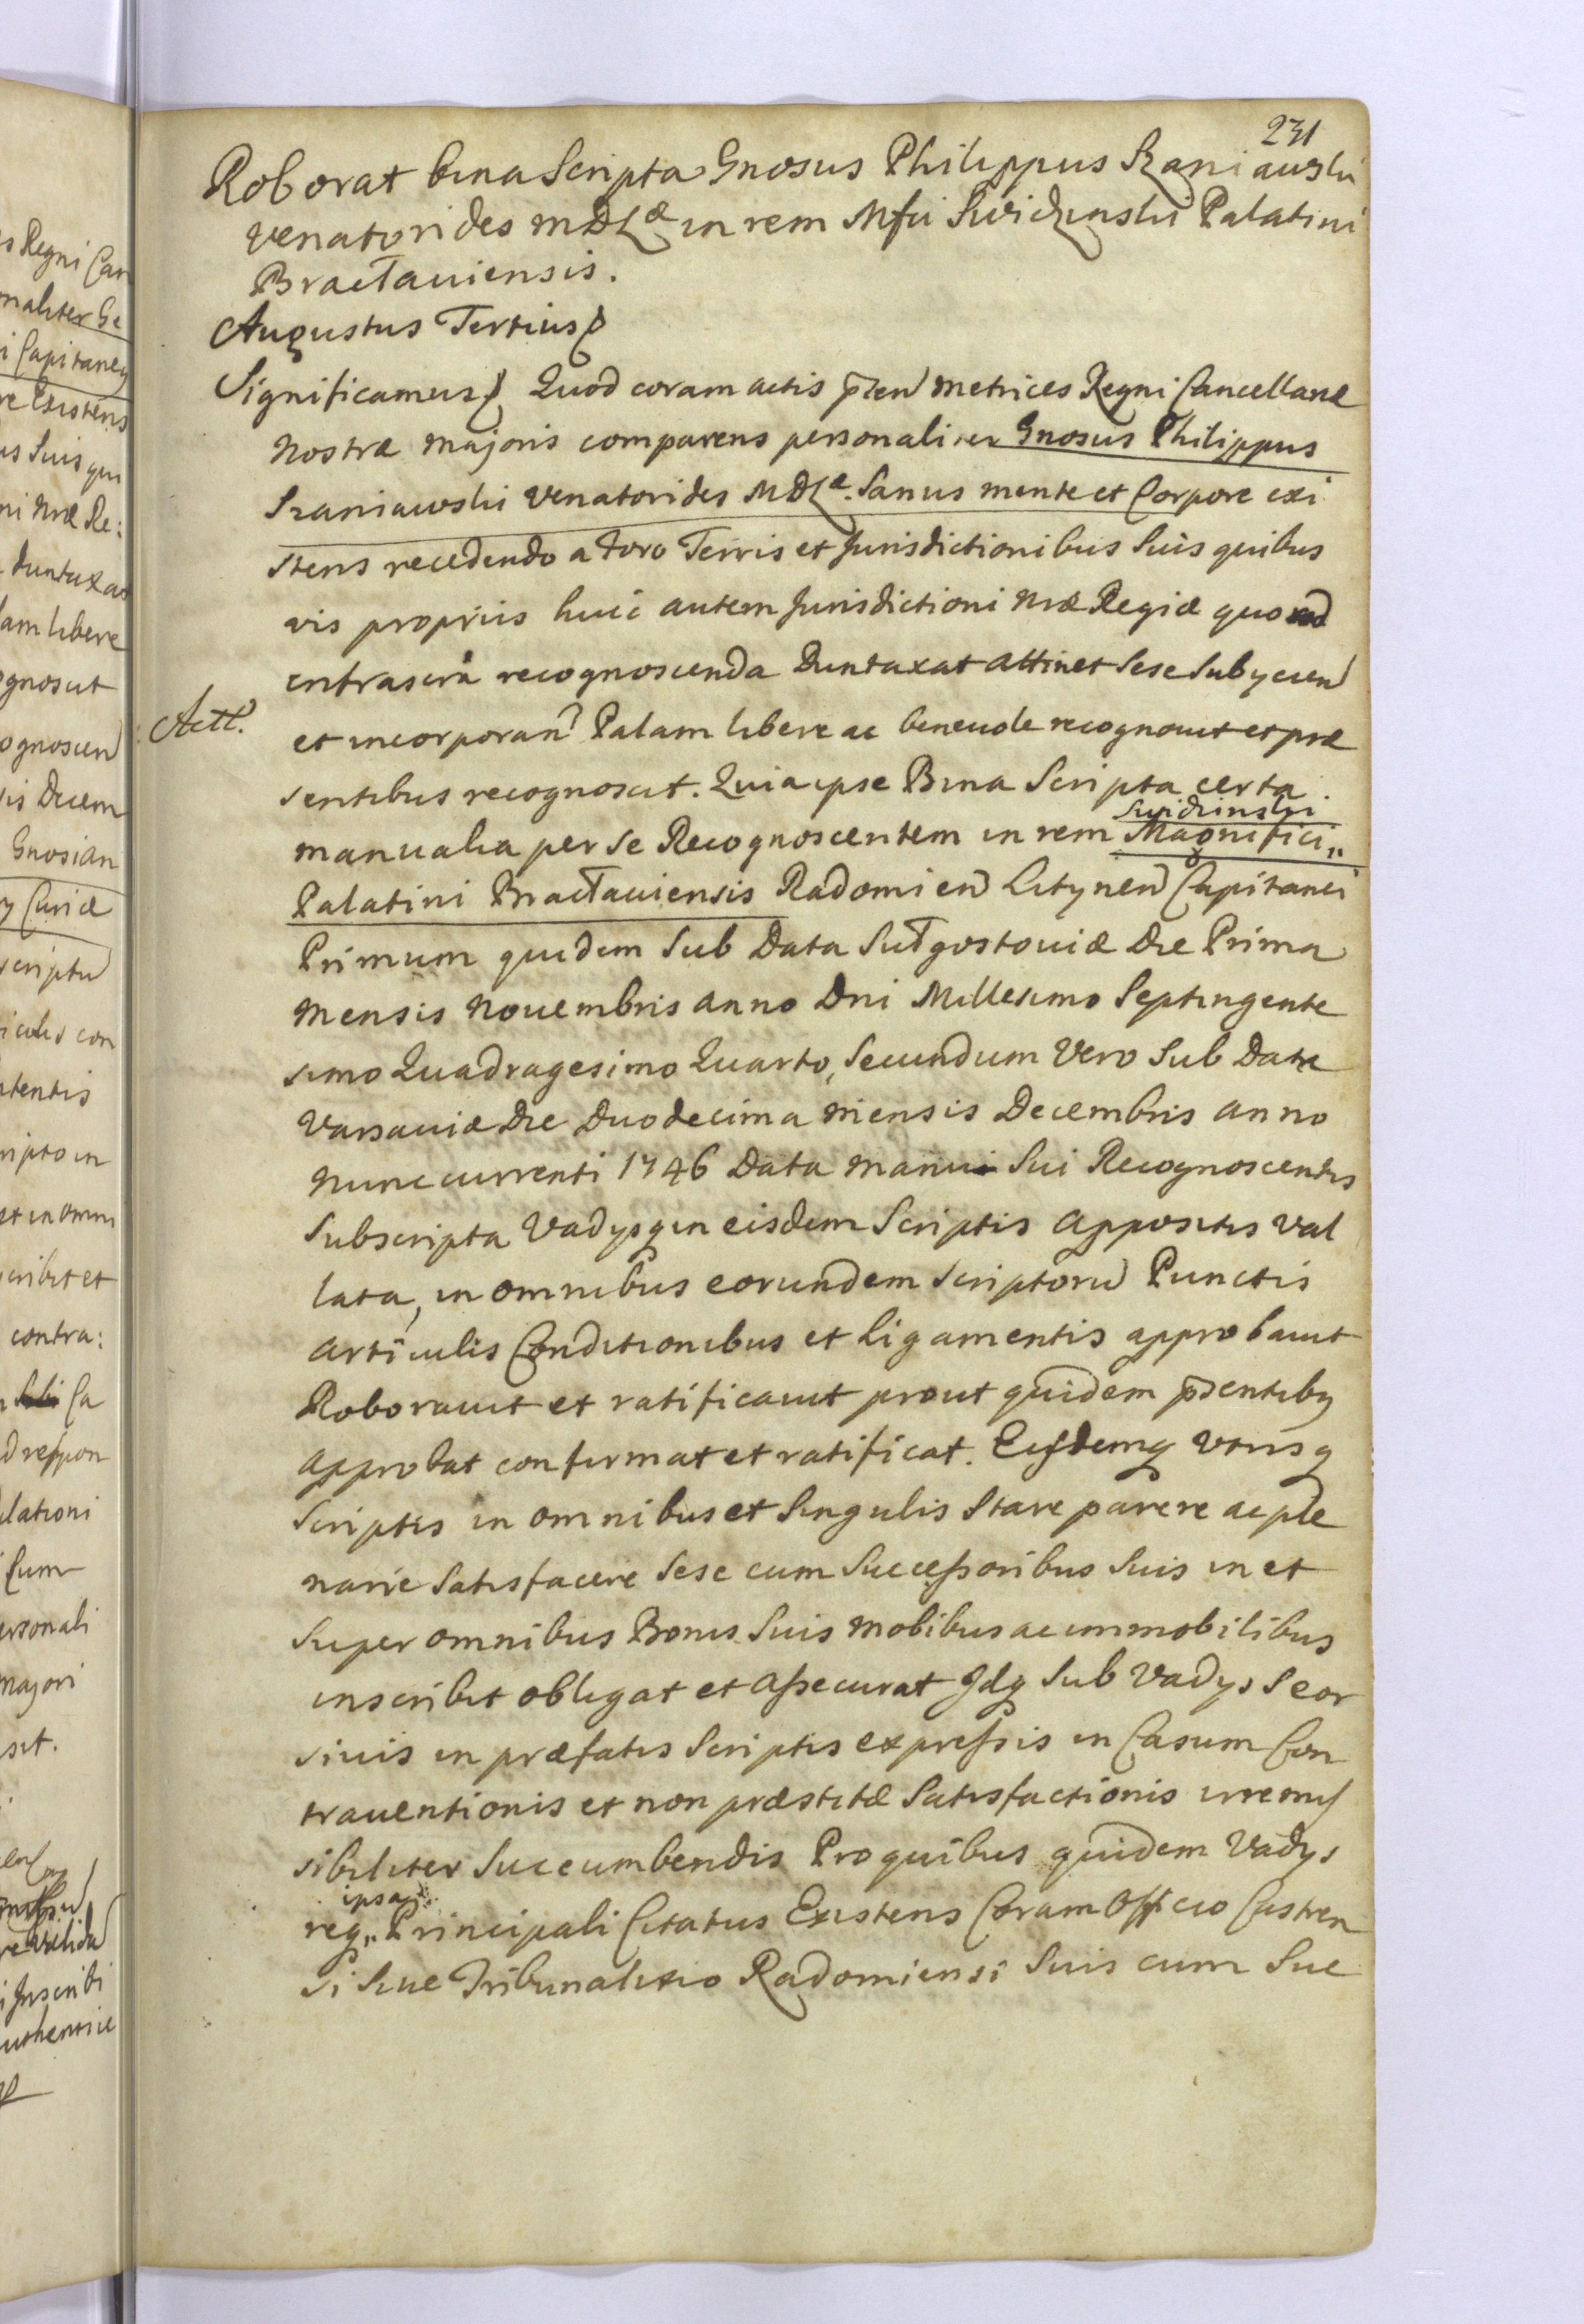 231
Roborat bina Scripta Gnosus Philippus Szaniawski
Venatorides MDLæ in rem Mfci Swidzinski Palatini
Bractaviensis.
Augustus Tertius
Significamus Quod coram actis pñen Metrices Regni Cancellariæ
Nostræ Majoris comparens personaliter Gnosus Philippus
Szaniawski Venatorides MDLæ. Sanus mente et Corpore exi
stens recedendo a Foro Terris et Jurisdictionibus Suis quibus
vis propriis huic autem Jurisdictioni Nræ Regiæ quoad
infrascra recognoscenda Duntaxat attinet Sese Subycien
et incorporan Palam libere ac benevole recognovit et præ
Actt.
sentibus recognoscit. Quia ipse Bina Scripta certa
Swidzinski
manualia per Se Recognoscentem in rem Magnifici „
Palatini Bractaviensis Radomien Litynen Capitanei
Primum quidem Sub Data Sulgostoviæ Die Prima
Mensis Novembris anno Dni Millesimo Septingente
simo Quadragesimo Quarto, Secundum Vero Sub Data
Varsaviæ Die Duodecima Mensis Decembris anno
nunc currenti 1746 Data Manu Sui Recognoscentis
Subscripta Vadysq in eisdem Scriptis appositis Val
lata, in omnibus eorundem Scriptoru Punctis
articulis Conditionibus et Ligamentis approbavit
Roboravit et ratificavit prout quidem pñsentibq
approbat confirmat et ratificat. Eisdemq Utrisq
Scriptis in omnibus et Singulis Stare parere ac ple
narie Satisfacere Sese cum Successoribus Suis in et
Super omnibus Bonis Suis mobibus ac immobilibus
inscribit obligat et assecurat Idq Sub Vadys Seor
sivis in præfatis Scriptis expressis in Casum Con
traventionis et non præstitæ Satisfactionis irremis
sibiliter Succumbendis Pro quibus quidem Vadys
ipsaq
req„ Principali Citatus Existens Coram Officio Castren
si Sive Tribunalitio Radomiensi Suis cum Suc